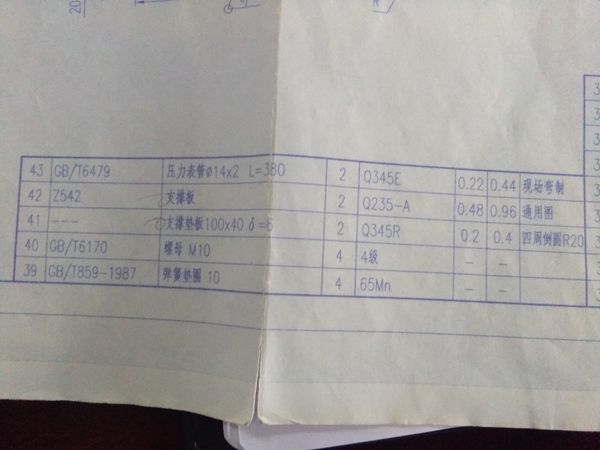 20
R
43 GB/T6479 压力表管ø14x2 L=380 2 Q345E 0.22 0.44 现场弯制
42 Z542 支撑板 2 Q235-A 0.48 0.96 通用图
41 --- 支撑垫板100x40 δ=6 2 Q345R 0.2 0.4 四周倒圆R20
40 GB/T6170 螺母 M10 4 4级 – –
39 GB/T859-1987 弹簧垫圈 10 4 65Mn – –